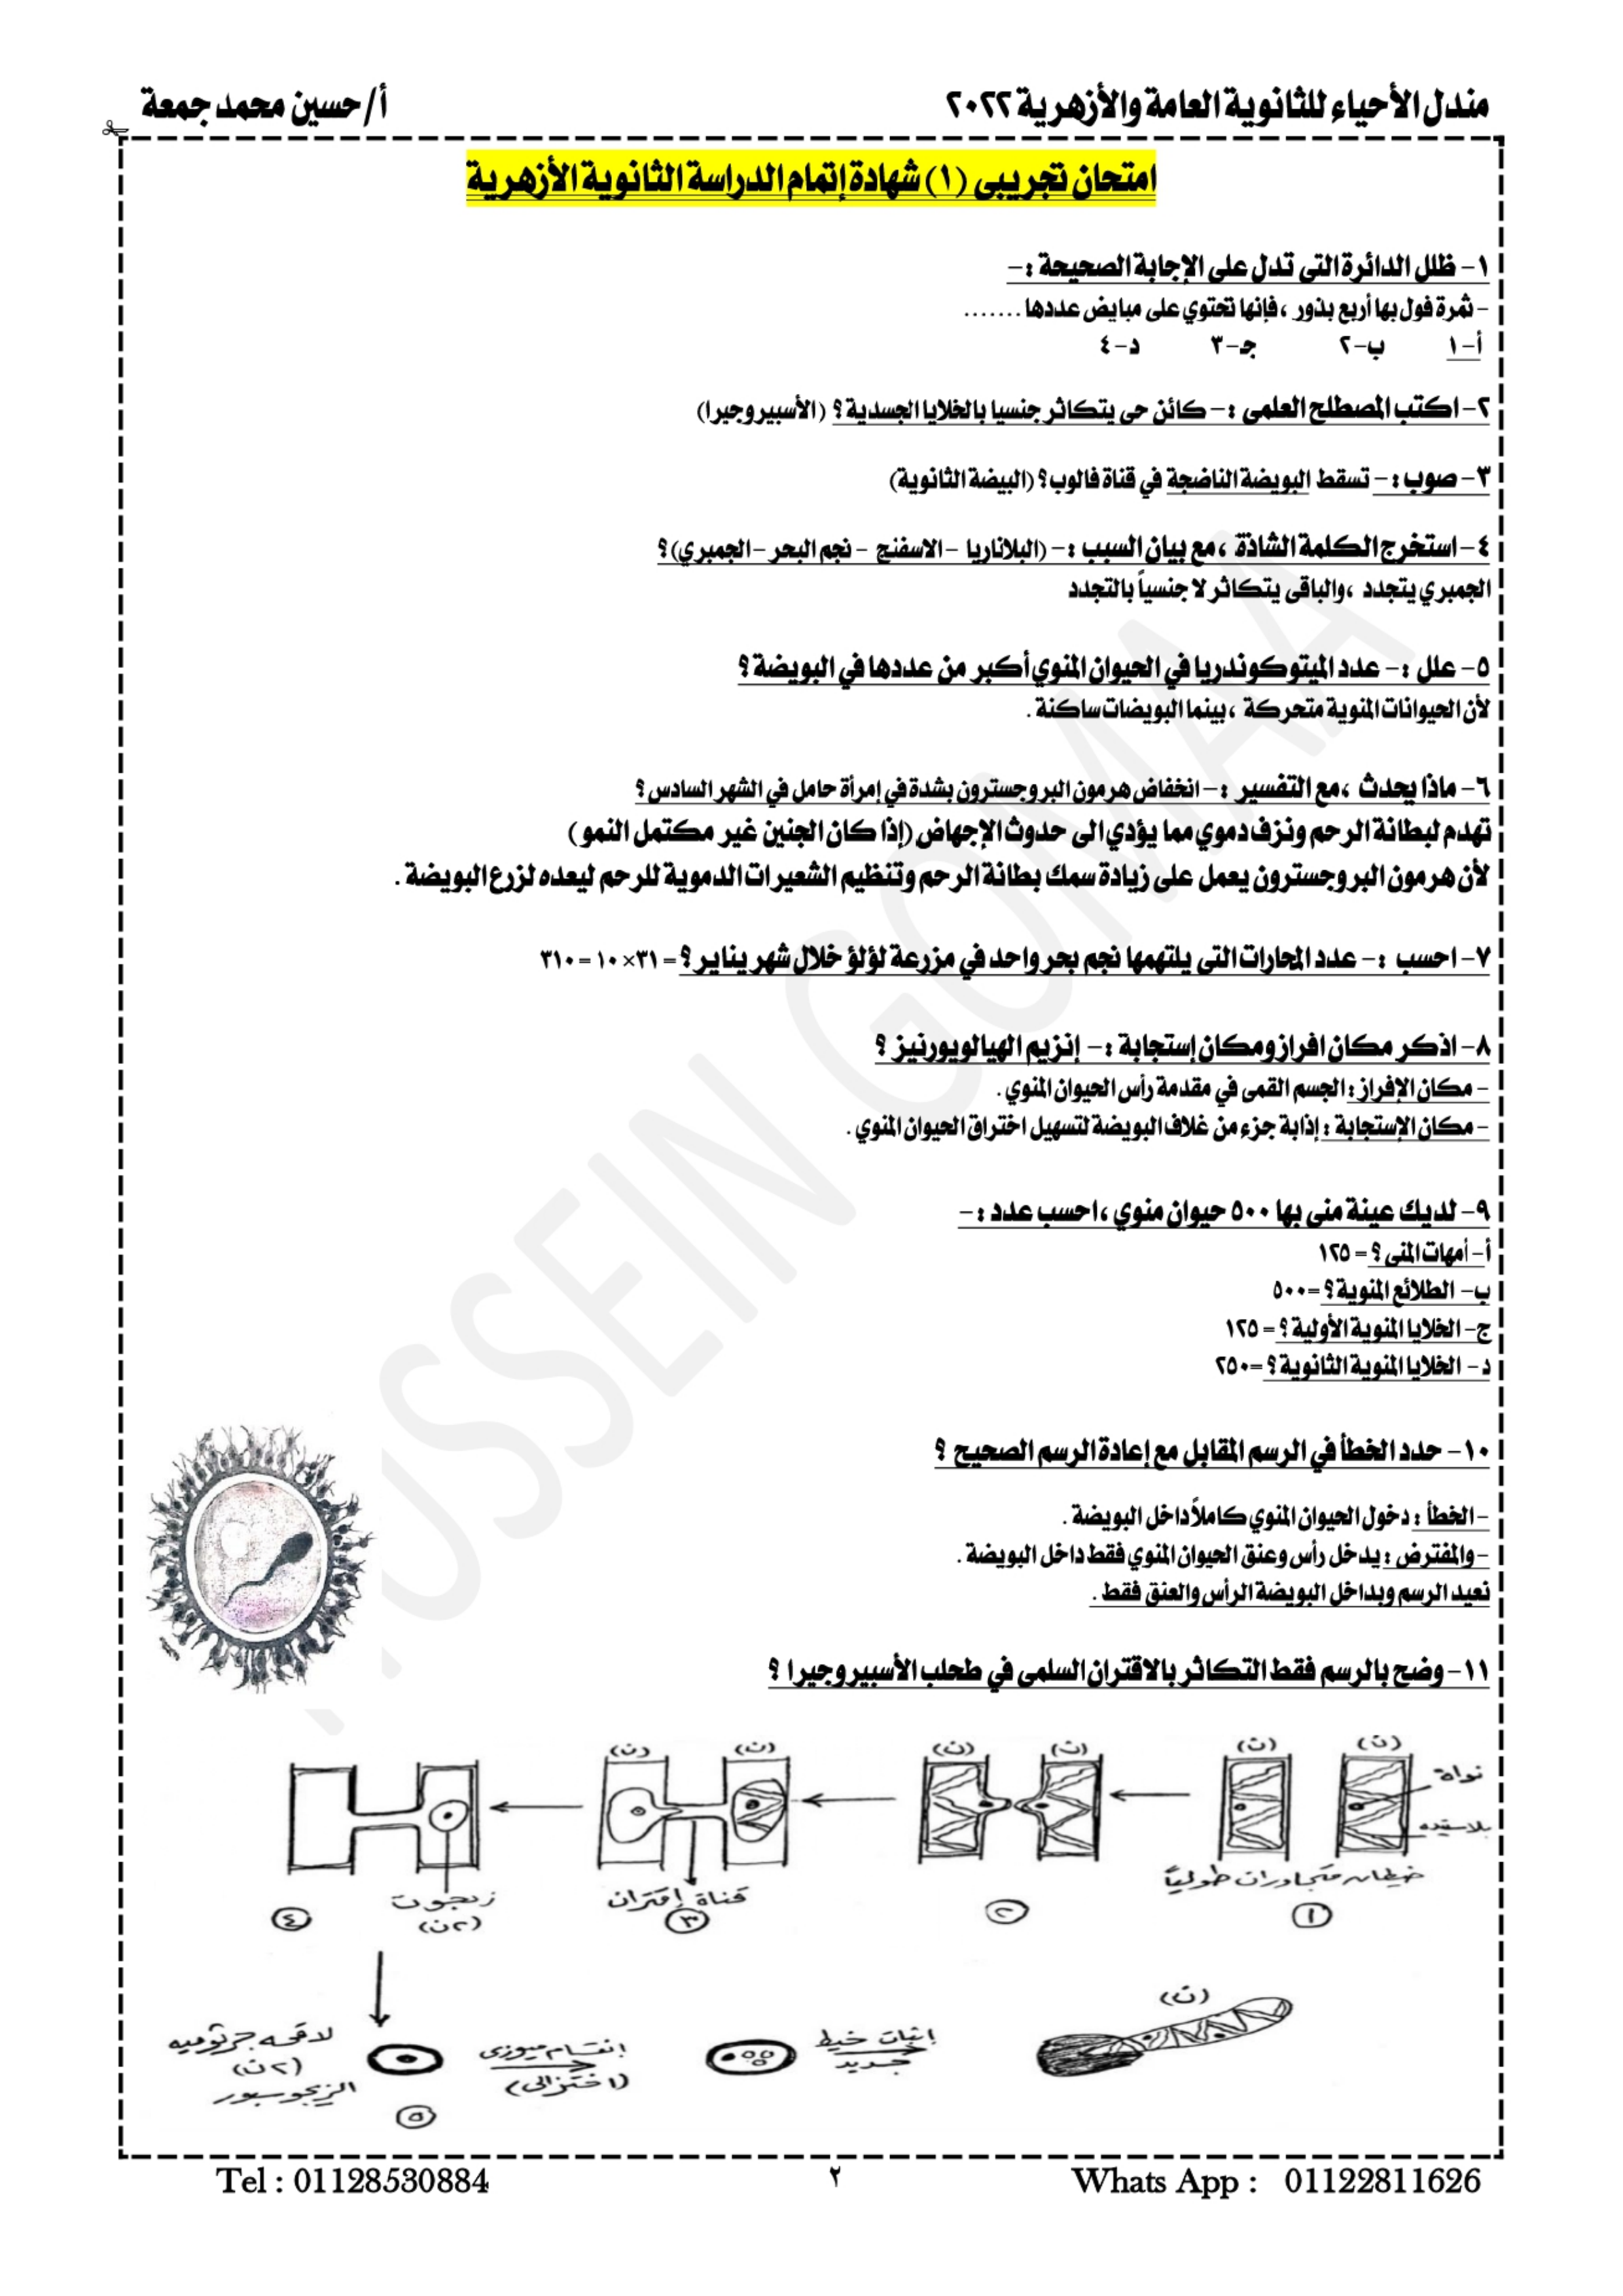 مندل الأحياء للثانوية العامة والأزهرية ٢٠٢٢
أ/حسين محمد جمعة
امتحان تجريبى (١) شهادة إتمام الدراسة الثانوية الأزهرية
١- ظلل الدائرة التى تدل على الإجابة الصحيحة :-
- ثمرة فول بها أربع بذور ، فإنها تحتوي على مبايض عددها .......
أ-١ ب-٢ جـ-٣ د-٤
٢- اكتب المصطلح العلمى :- كائن حى يتكاثر جنسيا بالخلايا الجسدية ؟ (الأسبيروجيرا)
٣- صوب :- تسقط البويضة الناضجة في قناة فالوب؟ (البيضة الثانوية)
٤- استخرج الكلمة الشاذة ، مع بيان السبب :- (البلاناريا - الاسفنج - نجم البحر - الجمبري) ؟
الجمبري يتجدد ، والباقى يتكاثر لا جنسياً بالتجدد
٥- علل :- عدد الميتوكوندريا في الحيوان المنوي أكبر من عددها في البويضة ؟
لأن الحيوانات المنوية متحركة ، بينما البويضات ساكنة .
٦- ماذا يحدث ، مع التفسير :- انخفاض هرمون البروجسترون بشدة في إمرأة حامل في الشهر السادس ؟
تهدم لبطانة الرحم ونزف دموي مما يؤدي الى حدوث الإجهاض (إذا كان الجنين غير مكتمل النمو)
لأن هرمون البروجسترون يعمل على زيادة سمك بطانة الرحم وتنظيم الشعيرات الدموية للرحم ليعده لزرع البويضة .
٧- احسب :- عدد المحارات التى يلتهمها نجم بحر واحد في مزرعة لؤلؤ خلال شهر يناير ؟ = ٣١ × ١٠ = ٣١٠
٨- اذكر مكان افراز ومكان إستجابة :- إنزيم الهيالويورنيز ؟
- مكان الإفراز : الجسم القمى في مقدمة رأس الحيوان المنوي .
- مكان الإستجابة : إذابة جزء من غلاف البويضة لتسهيل اختراق الحيوان المنوي .
٩- لديك عينة منى بها ٥٠٠ حيوان منوي ، احسب عدد :-
أ- أمهات المنى ؟ = ١٢٥
ب- الطلائع المنوية ؟ = ٥٠٠
ج- الخلايا المنوية الأولية ؟ = ١٢٥
د- الخلايا المنوية الثانوية ؟ = ٢٥٠
١٠- حدد الخطأ في الرسم المقابل مع إعادة الرسم الصحيح ؟
- الخطأ : دخول الحيوان المنوي كاملاً داخل البويضة .
- والمفترض : يدخل رأس وعنق الحيوان المنوي فقط داخل البويضة .
نعيد الرسم وبداخل البويضة الرأس والعنق فقط .
١١- وضح بالرسم فقط التكاثر بالاقتران السلمى في طحلب الأسبيروجيرا ؟
(ن) (ن) (ن) (ن) (ن) (ن)
نواة
بلاستيده
خيطان متجاوران طولياً
قناة إقتران
زيجوت
(٢ن)
١ ٢ ٣ ٤
(ن)
لاقحه جرثوميه
(٢ن)
الزيجوسبور
انقسام ميوزى
(اختزالى)
إنبات خيط
جديد
٥
HUSSEIN GOMAA
Tel : 01128530884
٢
Whats App : 01122811626